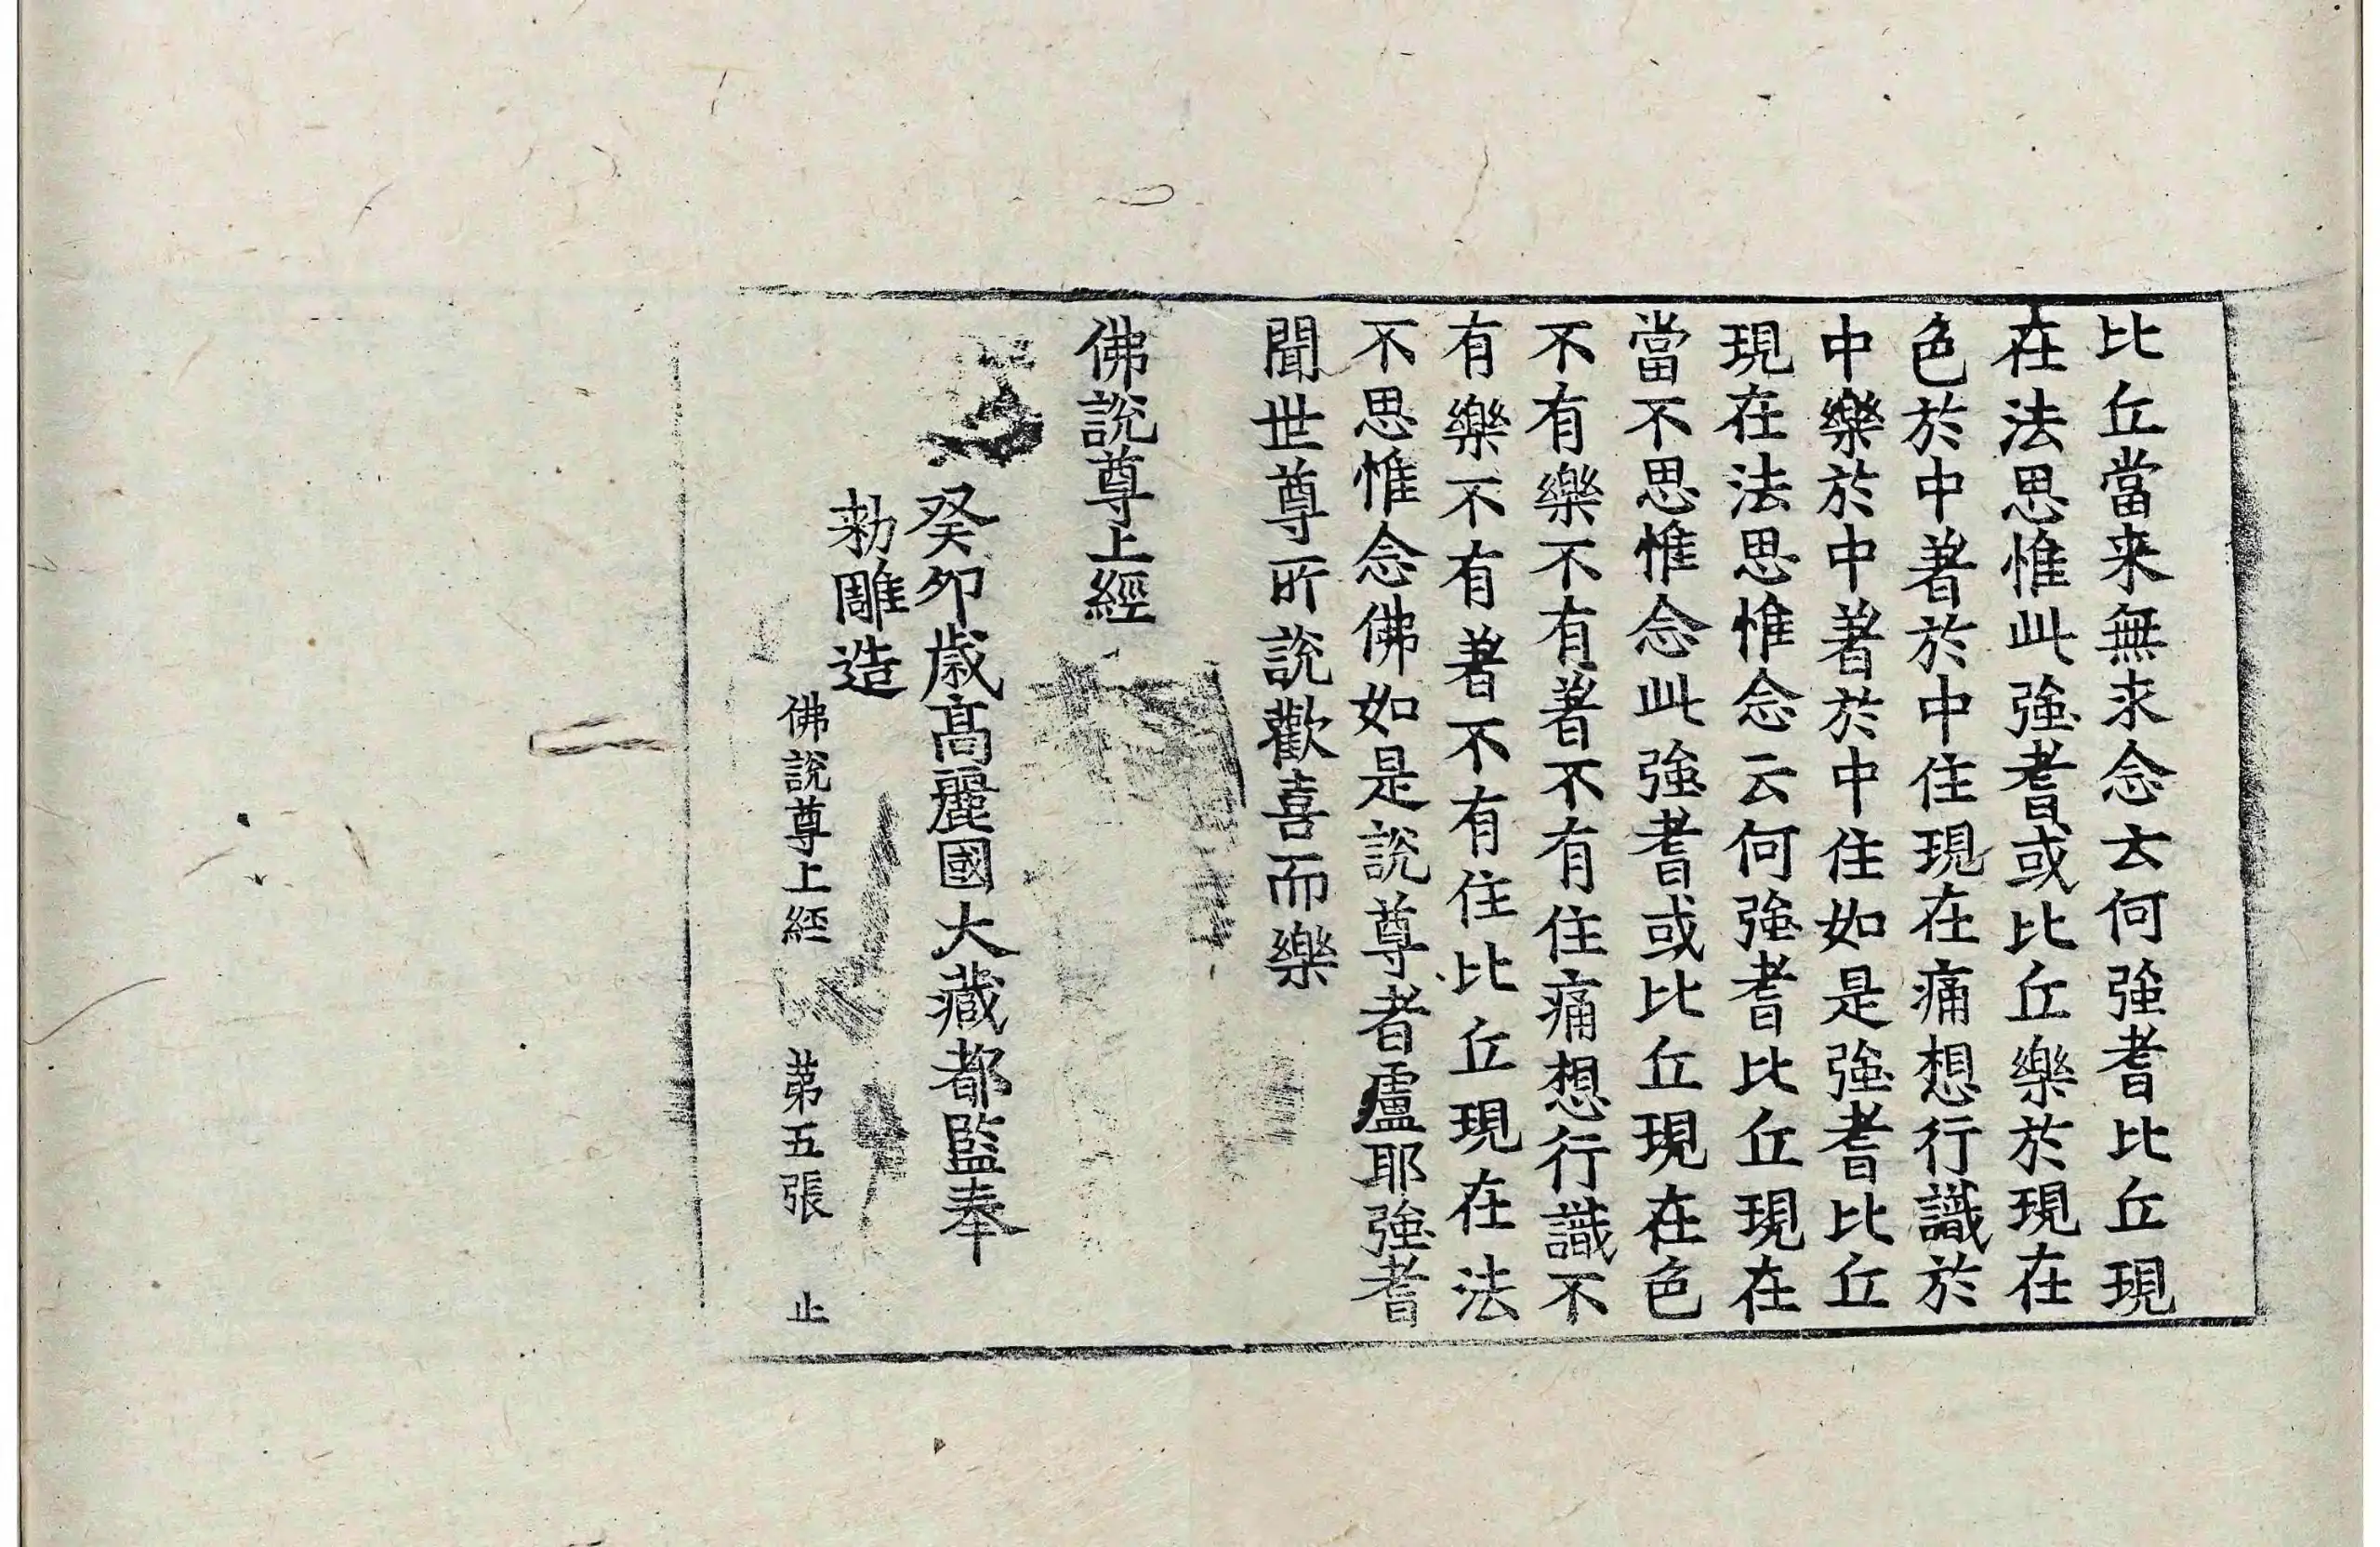 比丘當来無求念云何強耆比丘現
在法思惟此強耆或比丘樂於現在
色於中著於中住現在痛想行識於
中樂於中著於中住如是強耆比丘
現在法思惟念云何強耆比丘現在
當不思惟念此強耆或比丘現在色
不有樂不有著不有住痛想行識不
有樂不有著不有住比丘現在法
不思惟念佛如是說尊者盧耶強耆
聞世尊所說歡喜而樂
佛說尊上經
癸卯歲高麗國大藏都監奉
勑雕造
佛說尊上經 第五張 止